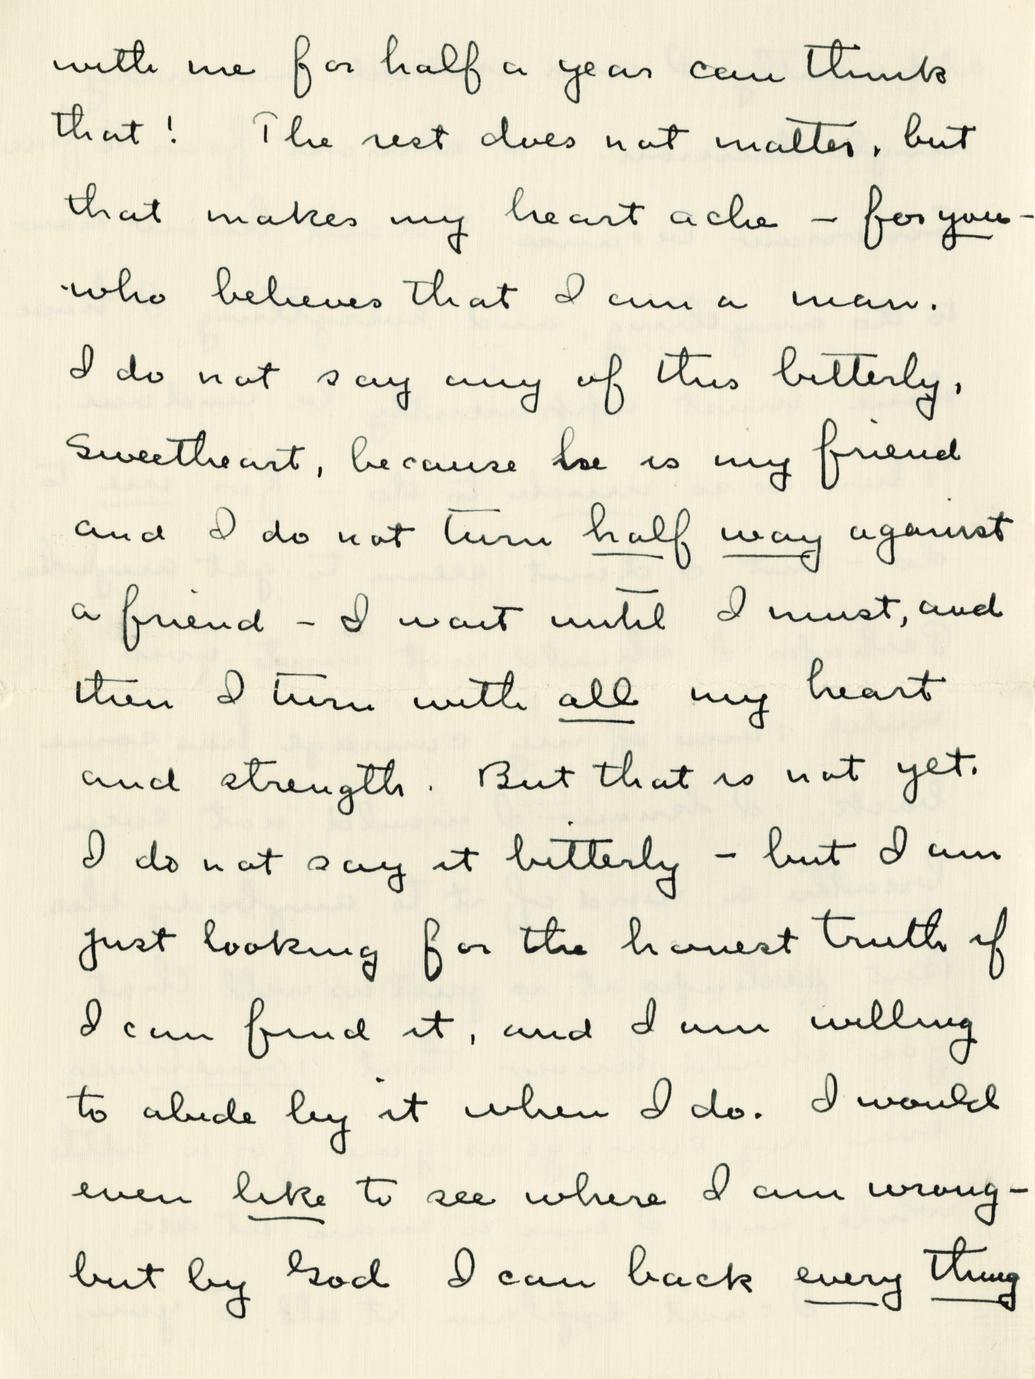 with me for half a year can think
that! The rest does not matter, but
that makes my heart ache – for you –
who believes that I am a man.
I do not say any of this bitterly,
sweetheart, because he is my friend
and I do not turn half way against
a friend – I wait until I must, and
then I turn with all my heart
and strength. But that is not yet.
I do not say it bitterly – but I am
just looking for the honest truth if
I can find it, and I am willing
to abide by it when I do. I would
even like to see where I am wrong –
but by God I can back every thing